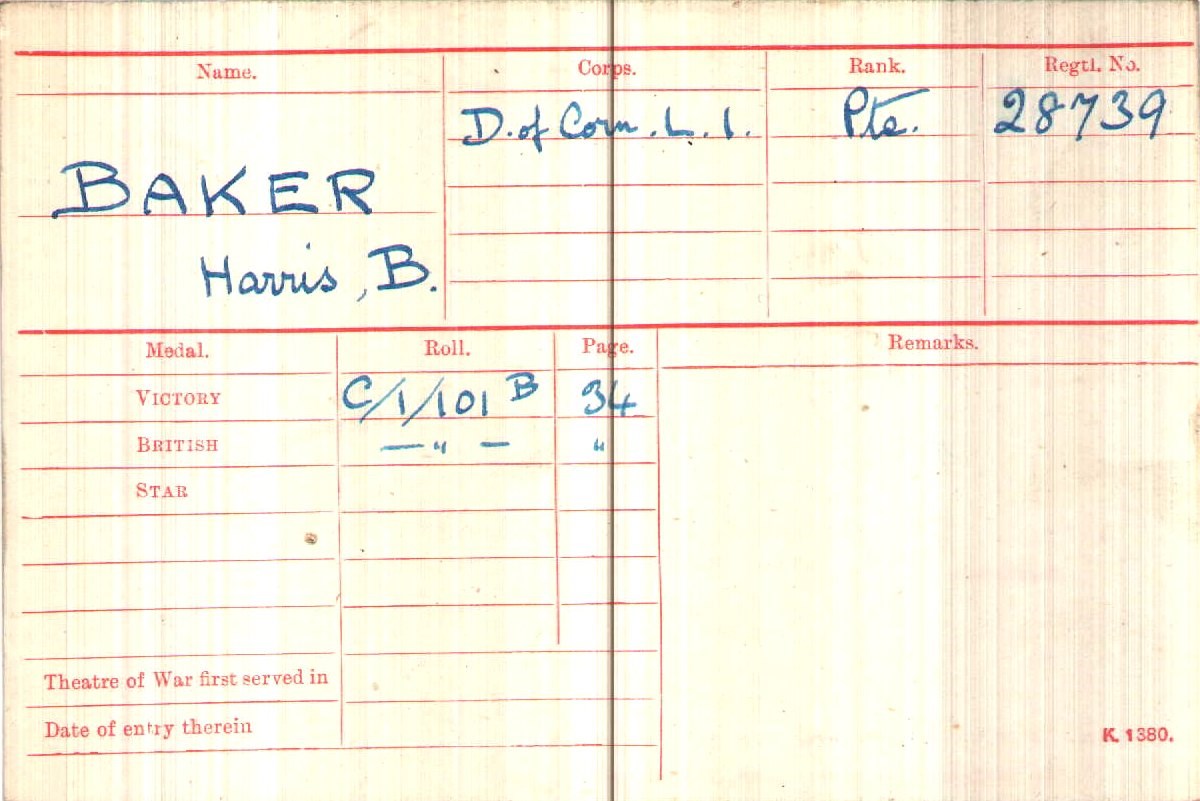 Name. Corps. Rank. Regtl. No.
D. of Corn. L. I. Pte. 28739
BAKER
Harris, B.
Medal. Roll. Page. Remarks.
VICTORY C/1/101 B 34
BRITISH — " — "
STAR
Theatre of War first served in
Date of entry therein
K. 1380.